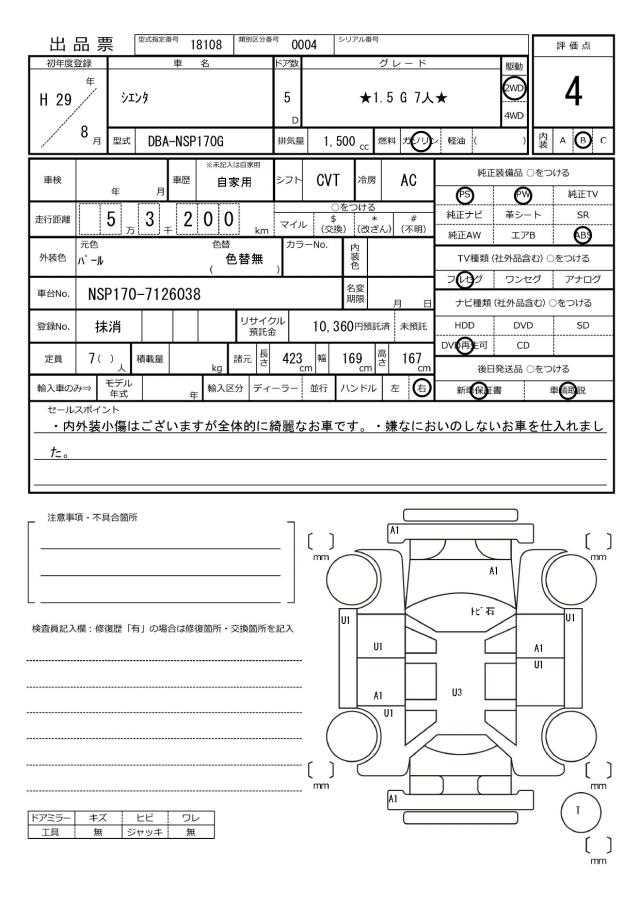 出品票 型式指定番号 18108 類別区分番号 0004 シリアル番号
評価点
4
内装 A B C
初年度登録 車名 ドア数 グレード 駆動
H 29 年 8 月
シエンタ
5 D
★1.5 G 7人★
2WD
4WD
型式 DBA-NSP170G 排気量 1,500 cc 燃料 ガソリン 軽油 ( )
車検 年 月 車歴 ※未記入は自家用 自家用 シフト CVT 冷房 AC
走行距離 5 万 3 千 2 0 0 km
○をつける
マイル $(交換) *(改ざん) #(不明)
外装色 元色 パール 色替 ( 色替無 ) カラーNo. 内装色
車台No. NSP170-7126038 名変期限 月 日
登録No. 抹消 リサイクル預託金 10,360円預託済 未預託
定員 7( )人 積載量 kg 諸元 長さ 423 cm 幅 169 cm 高さ 167 cm
輸入車のみ⇒ モデル年式 年 輸入区分 ディーラー 並行 ハンドル 左 右
純正装備品 ○をつける
PS PW 純正TV
純正ナビ 革シート SR
純正AW エアB ABS
TV種類(社外品含む)○をつける
フルセグ ワンセグ アナログ
ナビ種類(社外品含む)○をつける
HDD DVD SD
DVD再生可 CD
後日発送品 ○をつける
新車保証書 車輌取説
セールスポイント
・内外装小傷はございますが全体的に綺麗なお車です。・嫌なにおいのしないお車を仕入れまし
た。
注意事項・不具合箇所
検査員記入欄:修復歴「有」の場合は修復箇所・交換箇所を記入
ドアミラー キズ ヒビ ワレ
工具 無 ジャッキ 無
A1
mm
mm
A1
トビ石
U1
U1
U1
A1
U1
A1
U3
U1
mm
mm
A1
T
mm